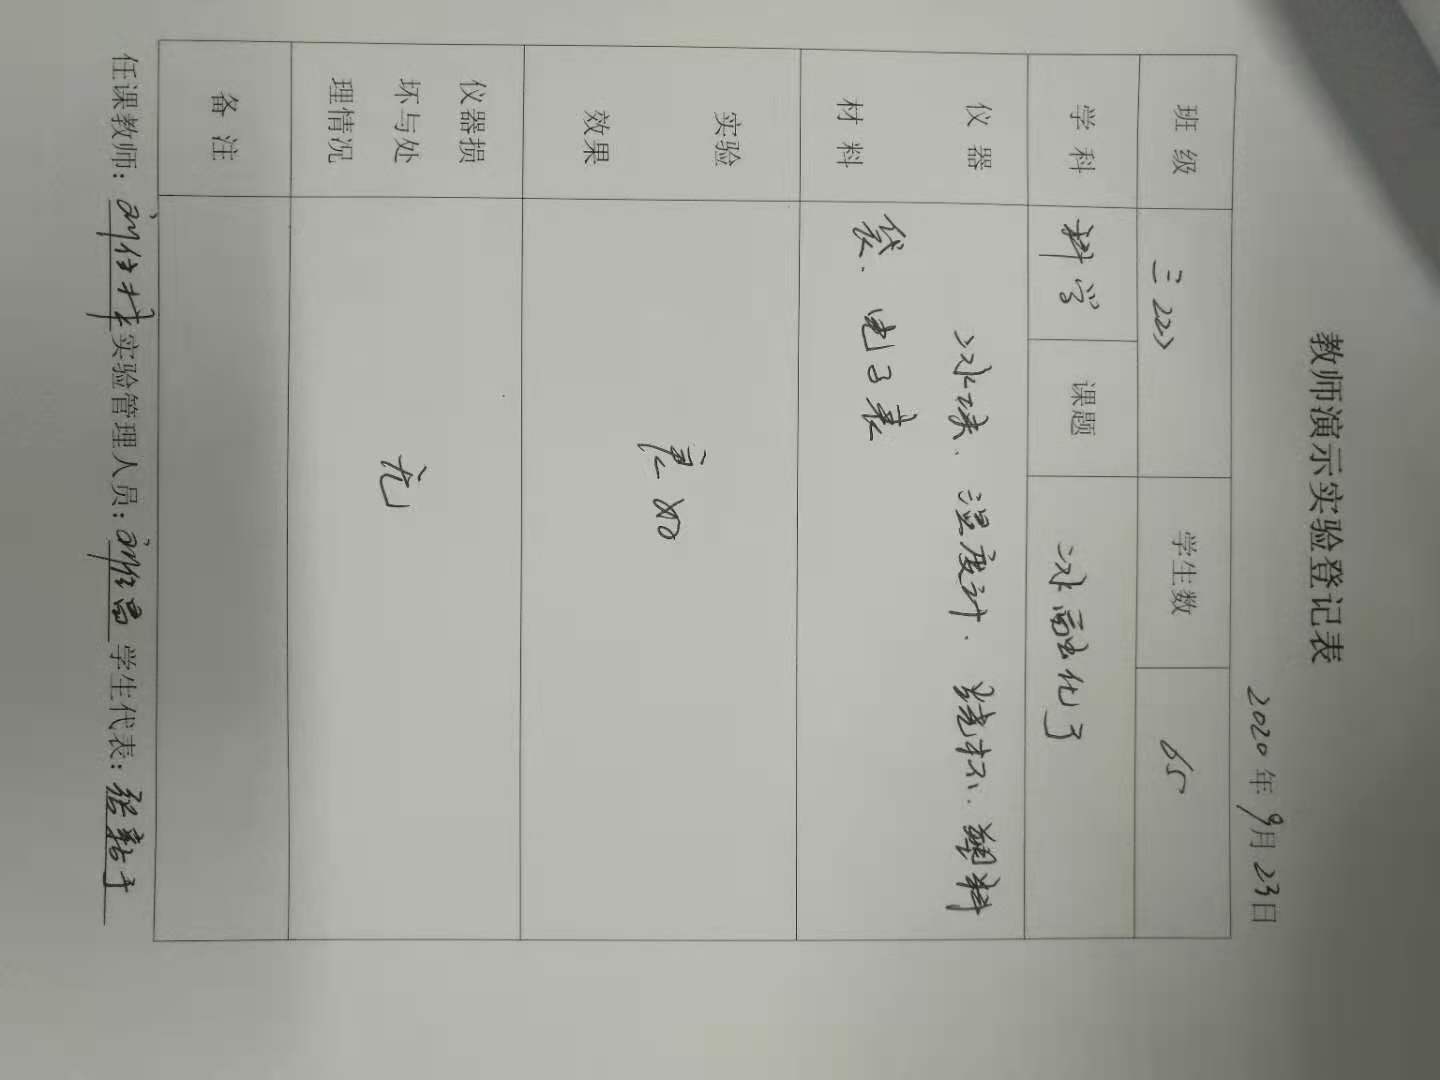 教师演示实验登记表
2020年9月23日
班级 三(2) 学生数 65
学科 科学 课题 冰融化了
仪器材料 冰块、温度计、烧杯、塑料
袋、电子表
实验效果 良好
仪器损坏与处理情况 无
备注
任课教师: 实验管理人员: 学生代表: